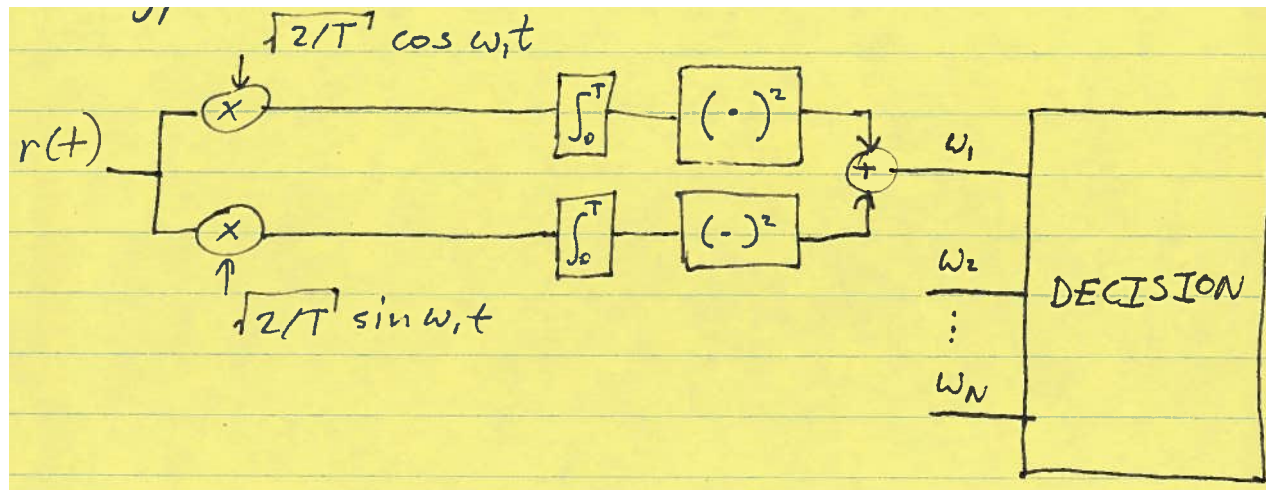 √2/T cos ω₁t
r(t)
×
∫₀ᵀ
(·)²
+
ω₁
×
∫₀ᵀ
(-)²
√2/T sin ω₁t
ω₂
⋮
ω_N
DECISION